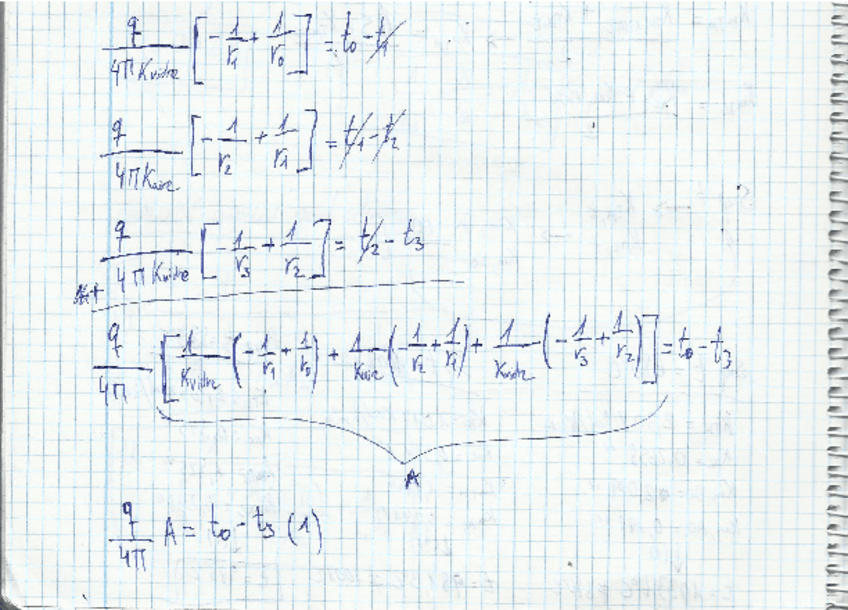 q/(4π Kvidre) [-1/r₁ + 1/r₀] = t₀ - t₁
q/(4π Kaire) [-1/r₂ + 1/r₁] = t₁ - t₂
q/(4π Kvidre) [-1/r₃ + 1/r₂] = t₂ - t₃
q/4π [1/Kvidre (-1/r₁ + 1/r₀) + 1/Kaire (-1/r₂ + 1/r₁) + 1/Kvidre (-1/r₃ + 1/r₂)] = t₀ - t₃
A
q/4π A = t₀ - t₃ (1)